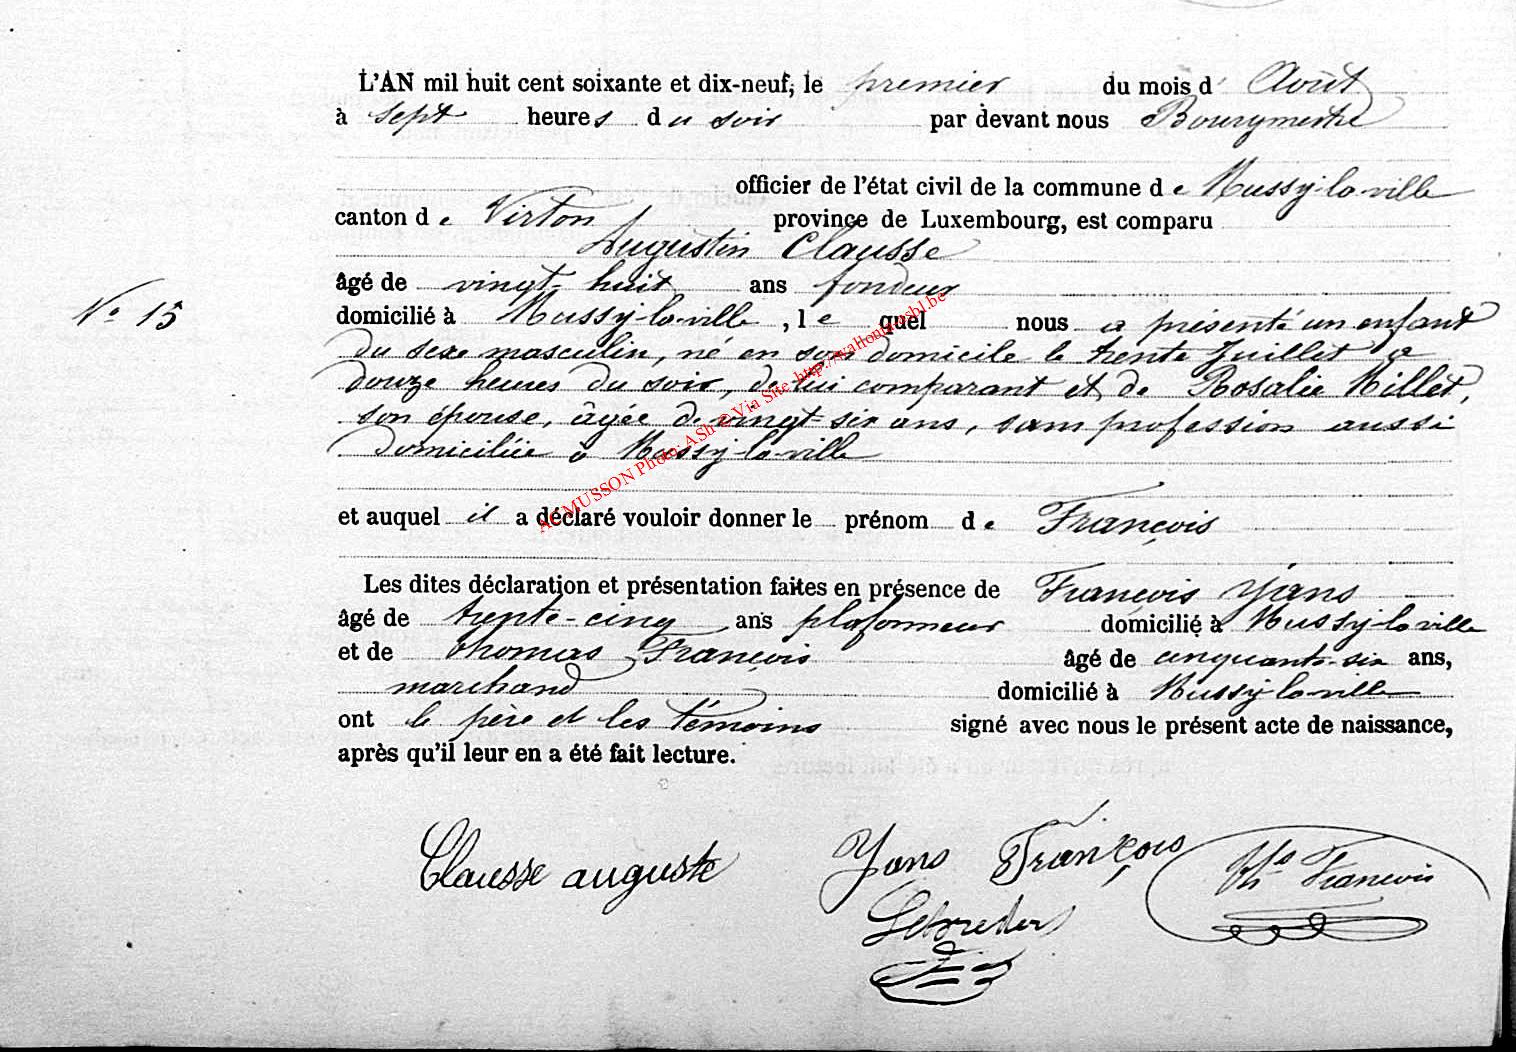 L'AN mil huit cent soixante et dix-neuf, le premier du mois d' Août
à sept heures du soir par devant nous Bourgmestre
officier de l'état civil de la commune de Mussy-la-ville
canton de Virton province de Luxembourg, est comparu
Augustin Clausse
âgé de vingt-huit ans fondeur
domicilié à Mussy-la-ville, lequel nous a présenté un enfant
N° 15
du sexe masculin, né en son domicile le trente Juillet a
douze heures du soir, de lui comparant et de Rosalie Millet,
son épouse, âgée de vingt-six ans, sans profession aussi
domiciliée à Mussy-la-ville
et auquel il a déclaré vouloir donner le prénom de François
Les dites déclaration et présentation faites en présence de François Yans
âgé de trente-cinq ans plafonneur domicilié à Mussy-la-ville
et de Thomas François âgé de cinquante-six ans,
marchand domicilié à Mussy-la-ville
ont le père et les témoins signé avec nous le présent acte de naissance,
après qu'il leur en a été fait lecture.
Clausse auguste Yans François Ths François
AC MUSSON Photo: ASh © Via Site http://wallonica
sbl.be